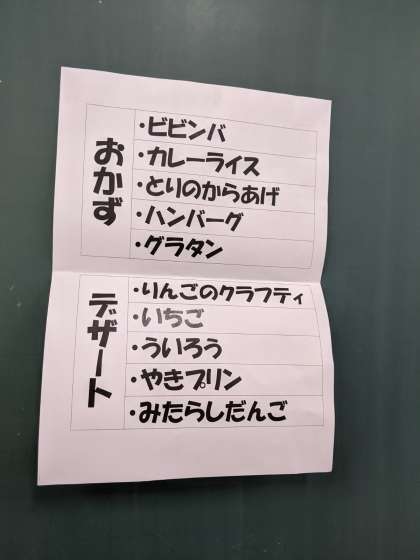 おかず
・ビビンバ
・カレーライス
・とりのからあげ
・ハンバーグ
・グラタン
デザート
・りんごのクラフティ
・いちご
・ういろう
・やきプリン
・みたらしだんご